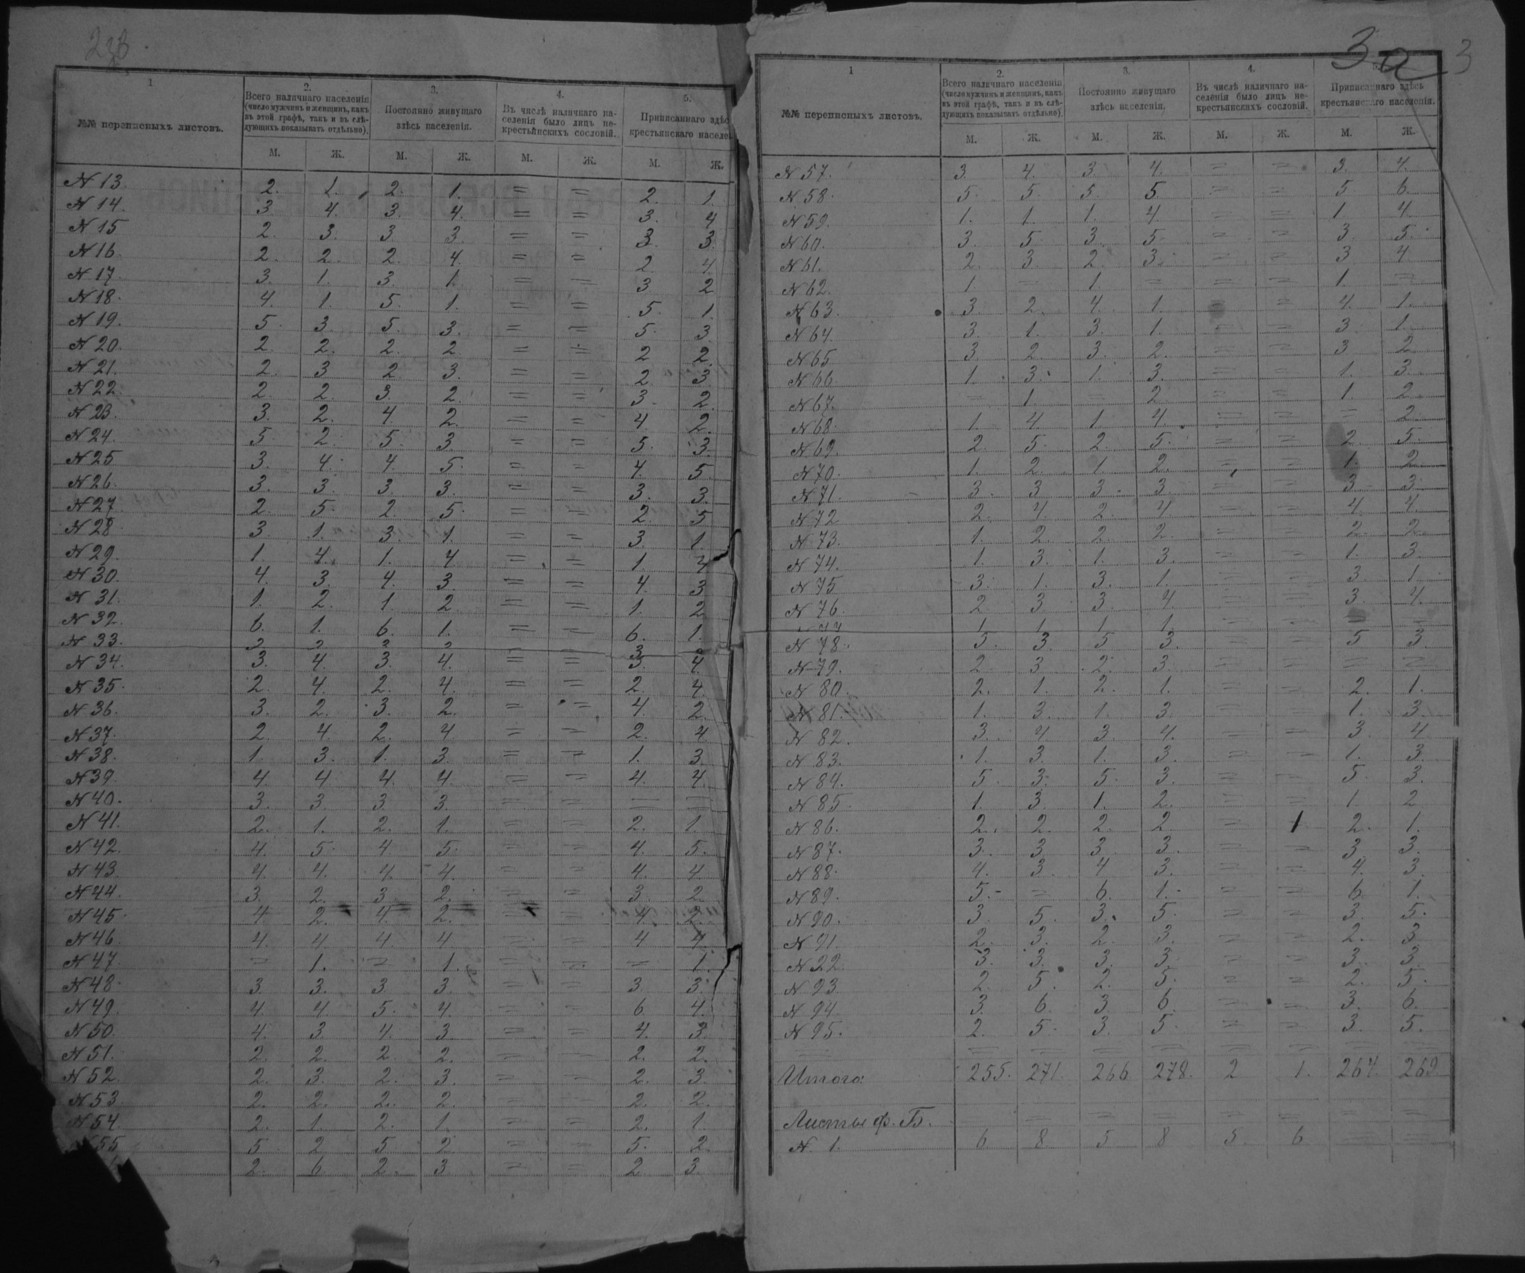 1.
2.
3.
4.
5.
№№ переписныхъ листовъ.
Всего наличнаго населенія (число мужчинъ и женщинъ, какъ въ этой графѣ, такъ и въ слѣдующихъ показывать отдѣльно).
Постоянно живущаго здѣсь населенія.
Въ числѣ наличнаго населенія было лицъ некрестьянскихъ сословій.
Приписаннаго здѣс
крестьянскаго населе
М. Ж. М. Ж. М. Ж. М. Ж.
N 13. 2. 1. 2. 1. = = 2. 1.
N 14. 3. 4. 3. 4. = = 3. 4
N 15 2. 3. 3. 3. = = 3. 3.
N 16 2. 2. 2. 4. = = 2 4.
N 17 3. 1. 3. 1. = = 3 2
N 18. 4. 1. 5. 1. = = 5. 1.
N 19. 5. 3. 5. 3. = = 5. 3
N 20. 2 2. 2. 2 = = 2 2.
N 21. 2. 3 2 3. = = 2 3.
N 22 2. 2 3. 2. = = 3. 2.
N 23. 3 2. 4 2. = = 4. 2.
N 24. 5 2 5. 3 = = 5. 3.
N 25 3. 4. 4. 5. = = 4. 5
N 26. 3. 3. 3. 3. = = 3. 3.
N 27 2. 5. 2. 5. = = 2. 5
N 28 3. 1. 3. 1. = = 3. 1
N 29. 1. 4. 1. 4 = = 1. 4
N 30. 4. 3 4. 3. = = 4. 3
N 31. 1. 2. 1. 2 = = 1. 2
N 32. 6. 1. 6. 1. = = 6. 1
N 33.
N 34. 3. 4. 3. 4. = = 3. 4.
N 35. 2. 4. 2. 4. = = 2. 4.
N 36. 3. 2. 3. 2. = = 4. 2.
N 37. 2. 4 2. 4 = = 2. 4
N 38. 1 3. 1. 3. = = 1. 3.
N 39. 4. 4 4. 4. = = 4. 4.
N 40. 3. 3. 3 3. = = = =
N 41. 2. 1. 2. 1. = = 2. 1.
N 42 4. 5. 4 5. = = 4. 5.
N 43. 4. 4. 4. 4. = = 4. 4
N 44. 3. 2. 3. 2. = = 3. 2
N 45 4 2. 4 2. = = 4. 2.
N 46. 4. 4 4 4. = = 4 4.
N 47 = 1. = 1. = = = 1.
N 48. 3 3. 3 3. = = 3 3.
N 49. 4. 4 5. 4. = = 6. 4.
N 50. 4. 3 4. 3. = = 4. 3.
N 51. 2. 2. 2 2. = = 2. 2.
N 52. 2. 3. 2. 3. = = 2. 3.
N 53. 2. 2. 2. 2. = = 2. 2.
N 54. 2. 1. 2. 1. = = 2. 1.
55 5 2 5 2 = = 5. 2.
2. 6 2. 3. = = 2 3.
3а 3
1
2.
3.
4.
№№ переписныхъ листовъ.
Всего наличнаго населенія (число мужчинъ и женщинъ, какъ въ этой графѣ, такъ и въ слѣдующихъ показывать отдѣльно).
Постоянно живущаго здѣсь населенія.
Въ числѣ наличнаго населенія было лицъ некрестьянскихъ сословій.
Приписаннаго здѣсь крестьянскаго населенія.
М. Ж. М. Ж. М. Ж. М. Ж.
N 57. 3. 4. 3. 4. = = 3. 4.
N 58. 5. 5 5. 5 = = 5 6.
N 59. 1. 1. 1. 4 = = 1. 4.
N 60. 3. 5 3. 5. = = 3 5.
N 61. 2. 3. 2 3. = = 3 4
N 62. 1. = 1. = = = 1. =
N 63. 3. 2. 4. 1. = = 4. 1.
N 64. 3. 1. 3. 1. = = 3. 1.
N 65 3. 2 3. 2. = = 3 2
N 66 1. 3. 1. 3. = = 1. 3.
N 67. = 1. = 2. = = 1 2.
N 68 1. 4. 1. 4. = = = 2.
N 69. 2. 5. 2. 5. = = 2. 5.
N 70. 1. 2 1. 2. = = 1. 2
N 71. 3. 3 3. 3. = = 3. 3.
N 72 2. 4. 2. 4 = = 4. 4.
N 73. 1. 2. 2. 2 = = 2. 2
N 74. 1. 3. 1. 3. = = 1. 3
N 75 3. 1. 3. 1. = = 3 1.
N 76. 2. 3 3. 4 = = 3 4.
N 78. 5. 3. 5 3. = = 5 3
N 79. 2. 3. 2. 3. = = = =
N 80. 2. 1. 2. 1. = = 2. 1.
N 81. 1. 3. 1. 3. = = 1. 3.
N 82. 3. 4 3. 4. = = 3. 4
N 83. 1. 3. 1. 3. = = 1. 3.
N 84. 5. 3. 5. 3. = = 5 3.
N 85 1. 3. 1. 2. = = 1. 2
N 86. 2. 2. 2. 2 = 1 2. 1.
N 87. 3. 3 3. 3. = = 3 3.
N 88. 4. 3 4 3. = = 4. 3.
N 89. 5. = 6. 1. = = 6. 1.
N 90. 3 5. 3. 5. = = 3. 5.
N 91. 2. 3. 2 3. = = 2. 3
N 92 3. 3. 3 3. = = 3. 3.
N 93 2. 5. 2. 5. = = 2. 5.
N 94 3. 6. 3 6. = = 3. 6.
N 95. 2. 5. 3. 5. = = 3. 5.
Итого: 255. 271. 266 278. 2 1. 264 269
Листы ф. Б.
N. 1. 6 8. 5 8 5. 6 = =